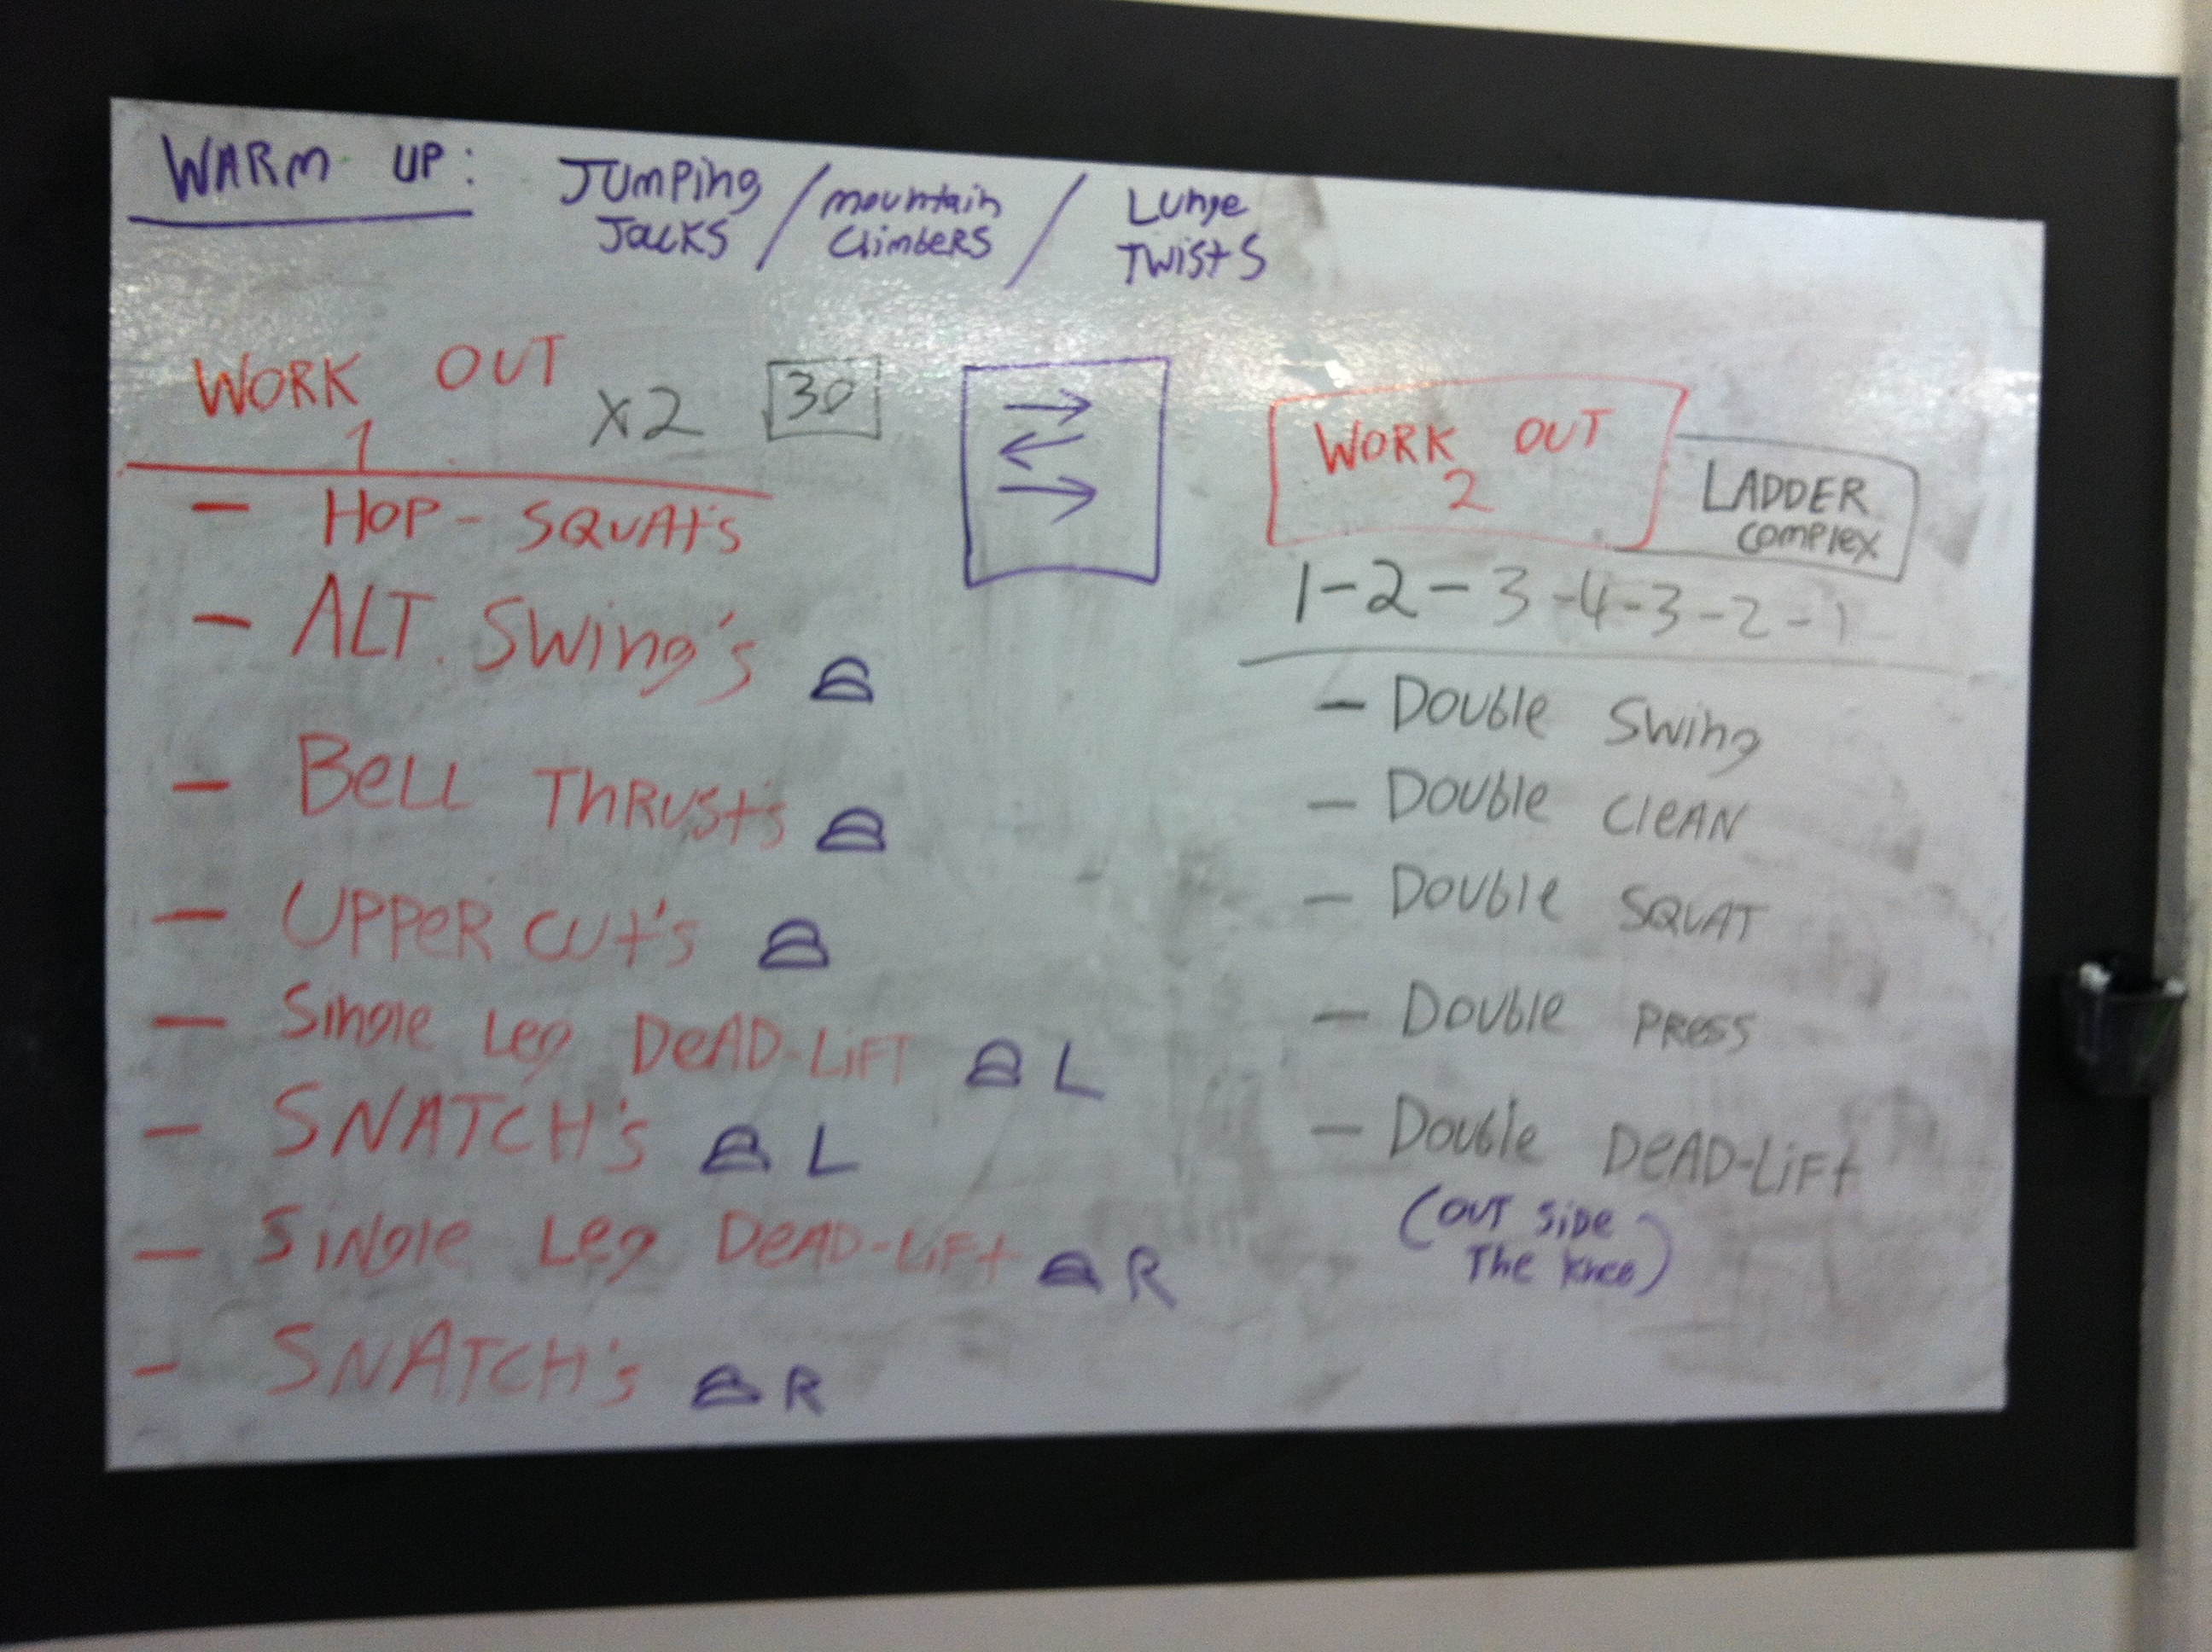 WARM UP:
JUMPing JACKS / mountain ClimbeRS / Lunge TwistS
WORK OUT 1 x2 30
- HOP-SQUAt's
- ALT. SWing's
- BeLL ThRUSt's
- UPPeR CUt's
- Single Leg DeAD-LiFT L
- SNATCH's L
- SiNgle Leg DeAD-LiFt R
- SNATCH's R
WORK OUT 2
LADDER complex
1-2-3-4-3-2-1
- Double Swing
- Double CleAN
- Double SQUAT
- Double PRess
- Double DeAD-LiFt
(OUT SiDe
The knee)